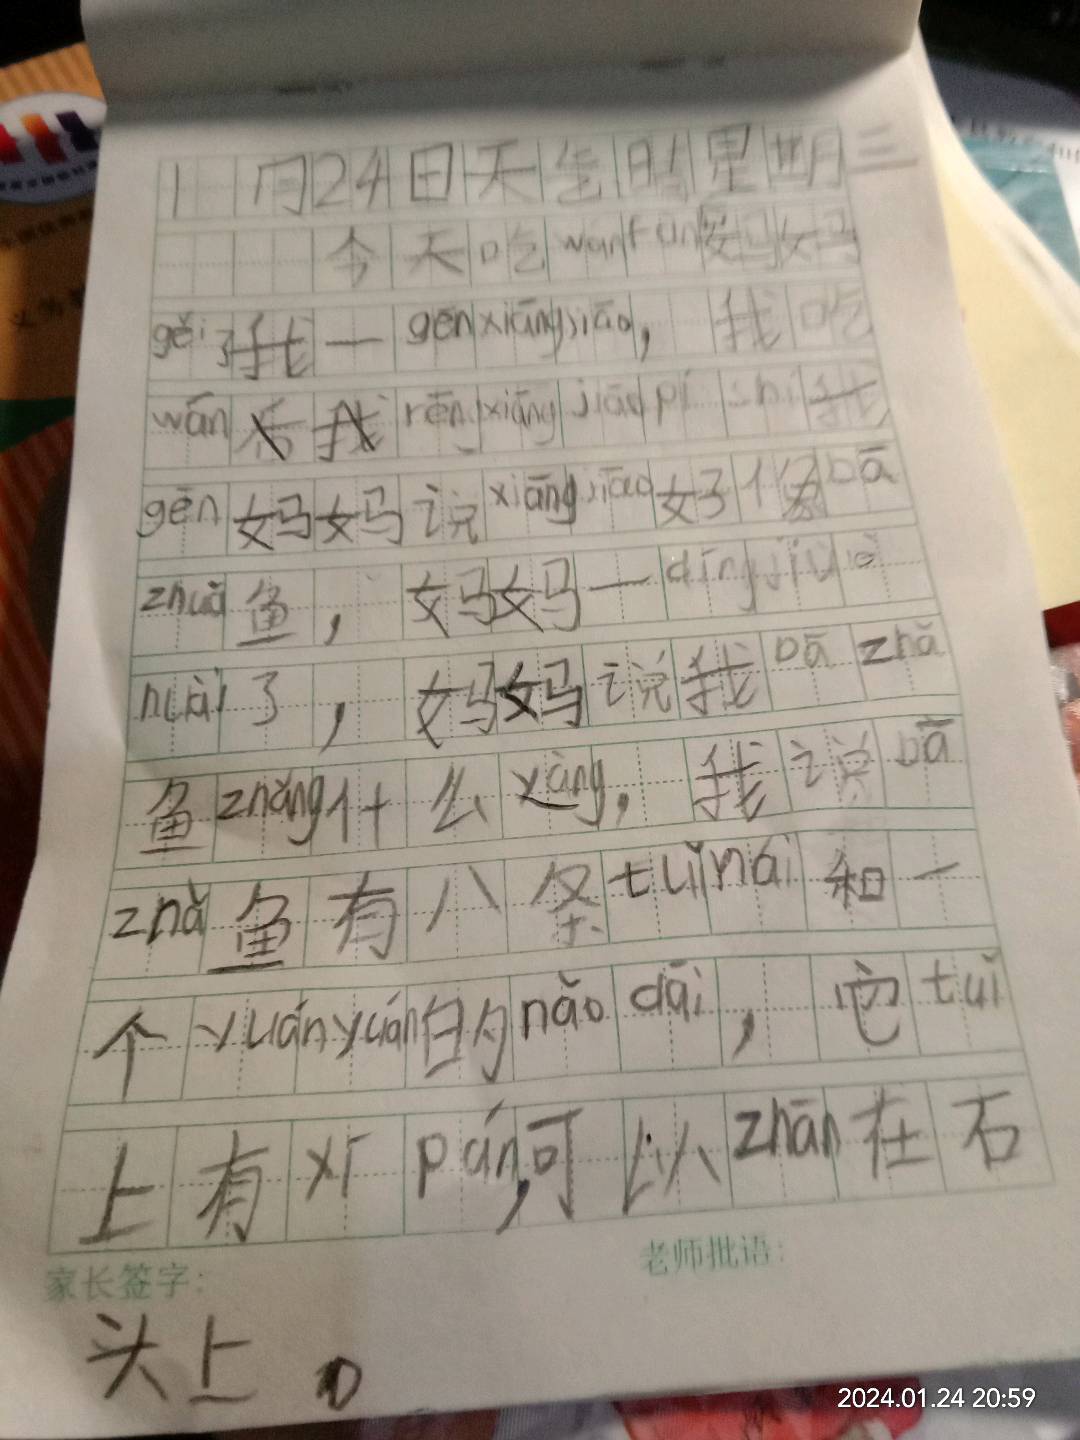 1月24日天气晴星期三
今天吃wanfan妈妈
gěi了我一gēnxiāngjiāo，我吃
wán后我rēngxiāngjiāopí shí我
gēn妈妈说xiāngjiāo好像bā
zhuā鱼，妈妈一dīngjiù
nuài了，妈妈说我bā zhǎ
鱼zhǎng什么yàng，我说bā
zhǎ鱼有八条tuǐnái和一
个yuányuán的nǎo dāi，它tuǐ
上有xīpán，可以zhān在石
家长签字：
老师批语：
头上。
2024.01.24 20:59